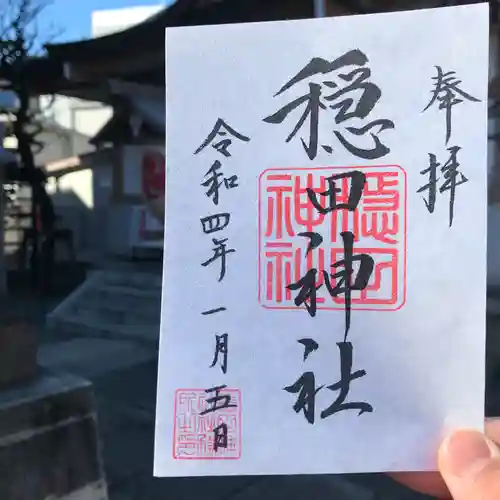 奉拝
穏田神社
令和四年一月五日
穏田神社